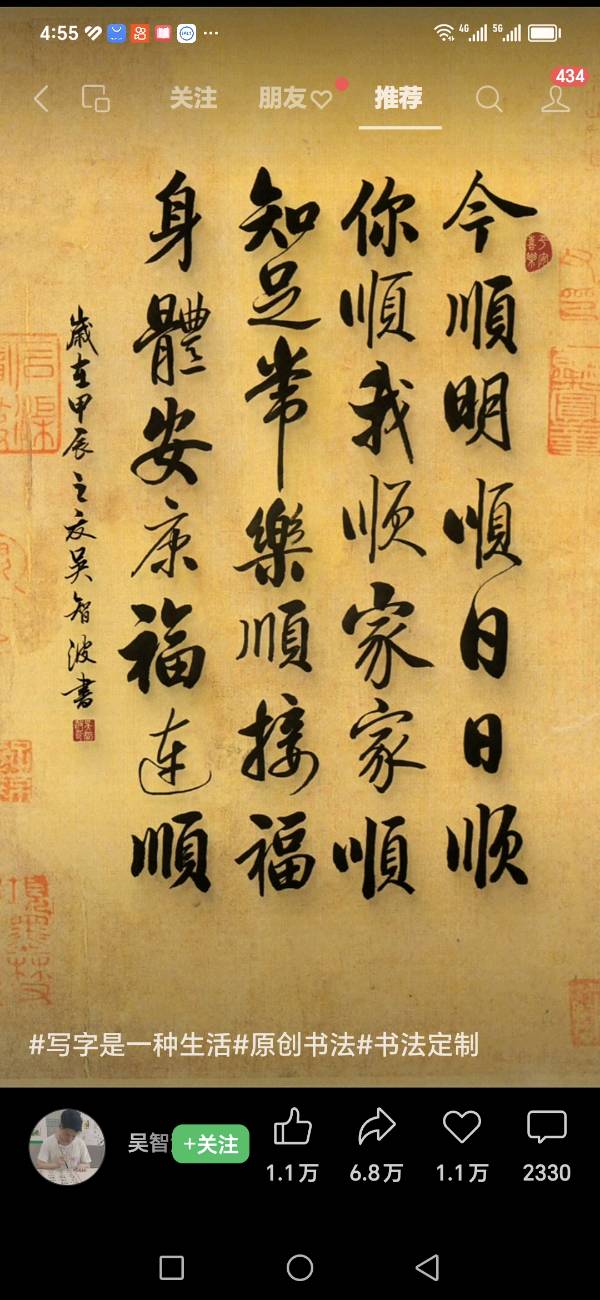 4:55
4G 5G
434
关注 朋友 推荐
今順明順日日顺
你順我顺家家順
知足常樂順接福
身體安康福连順
歲在甲辰之夏吴智波書
#写字是一种生活#原创书法#书法定制
吴智
+关注
1.1万 6.8万 1.1万 2330